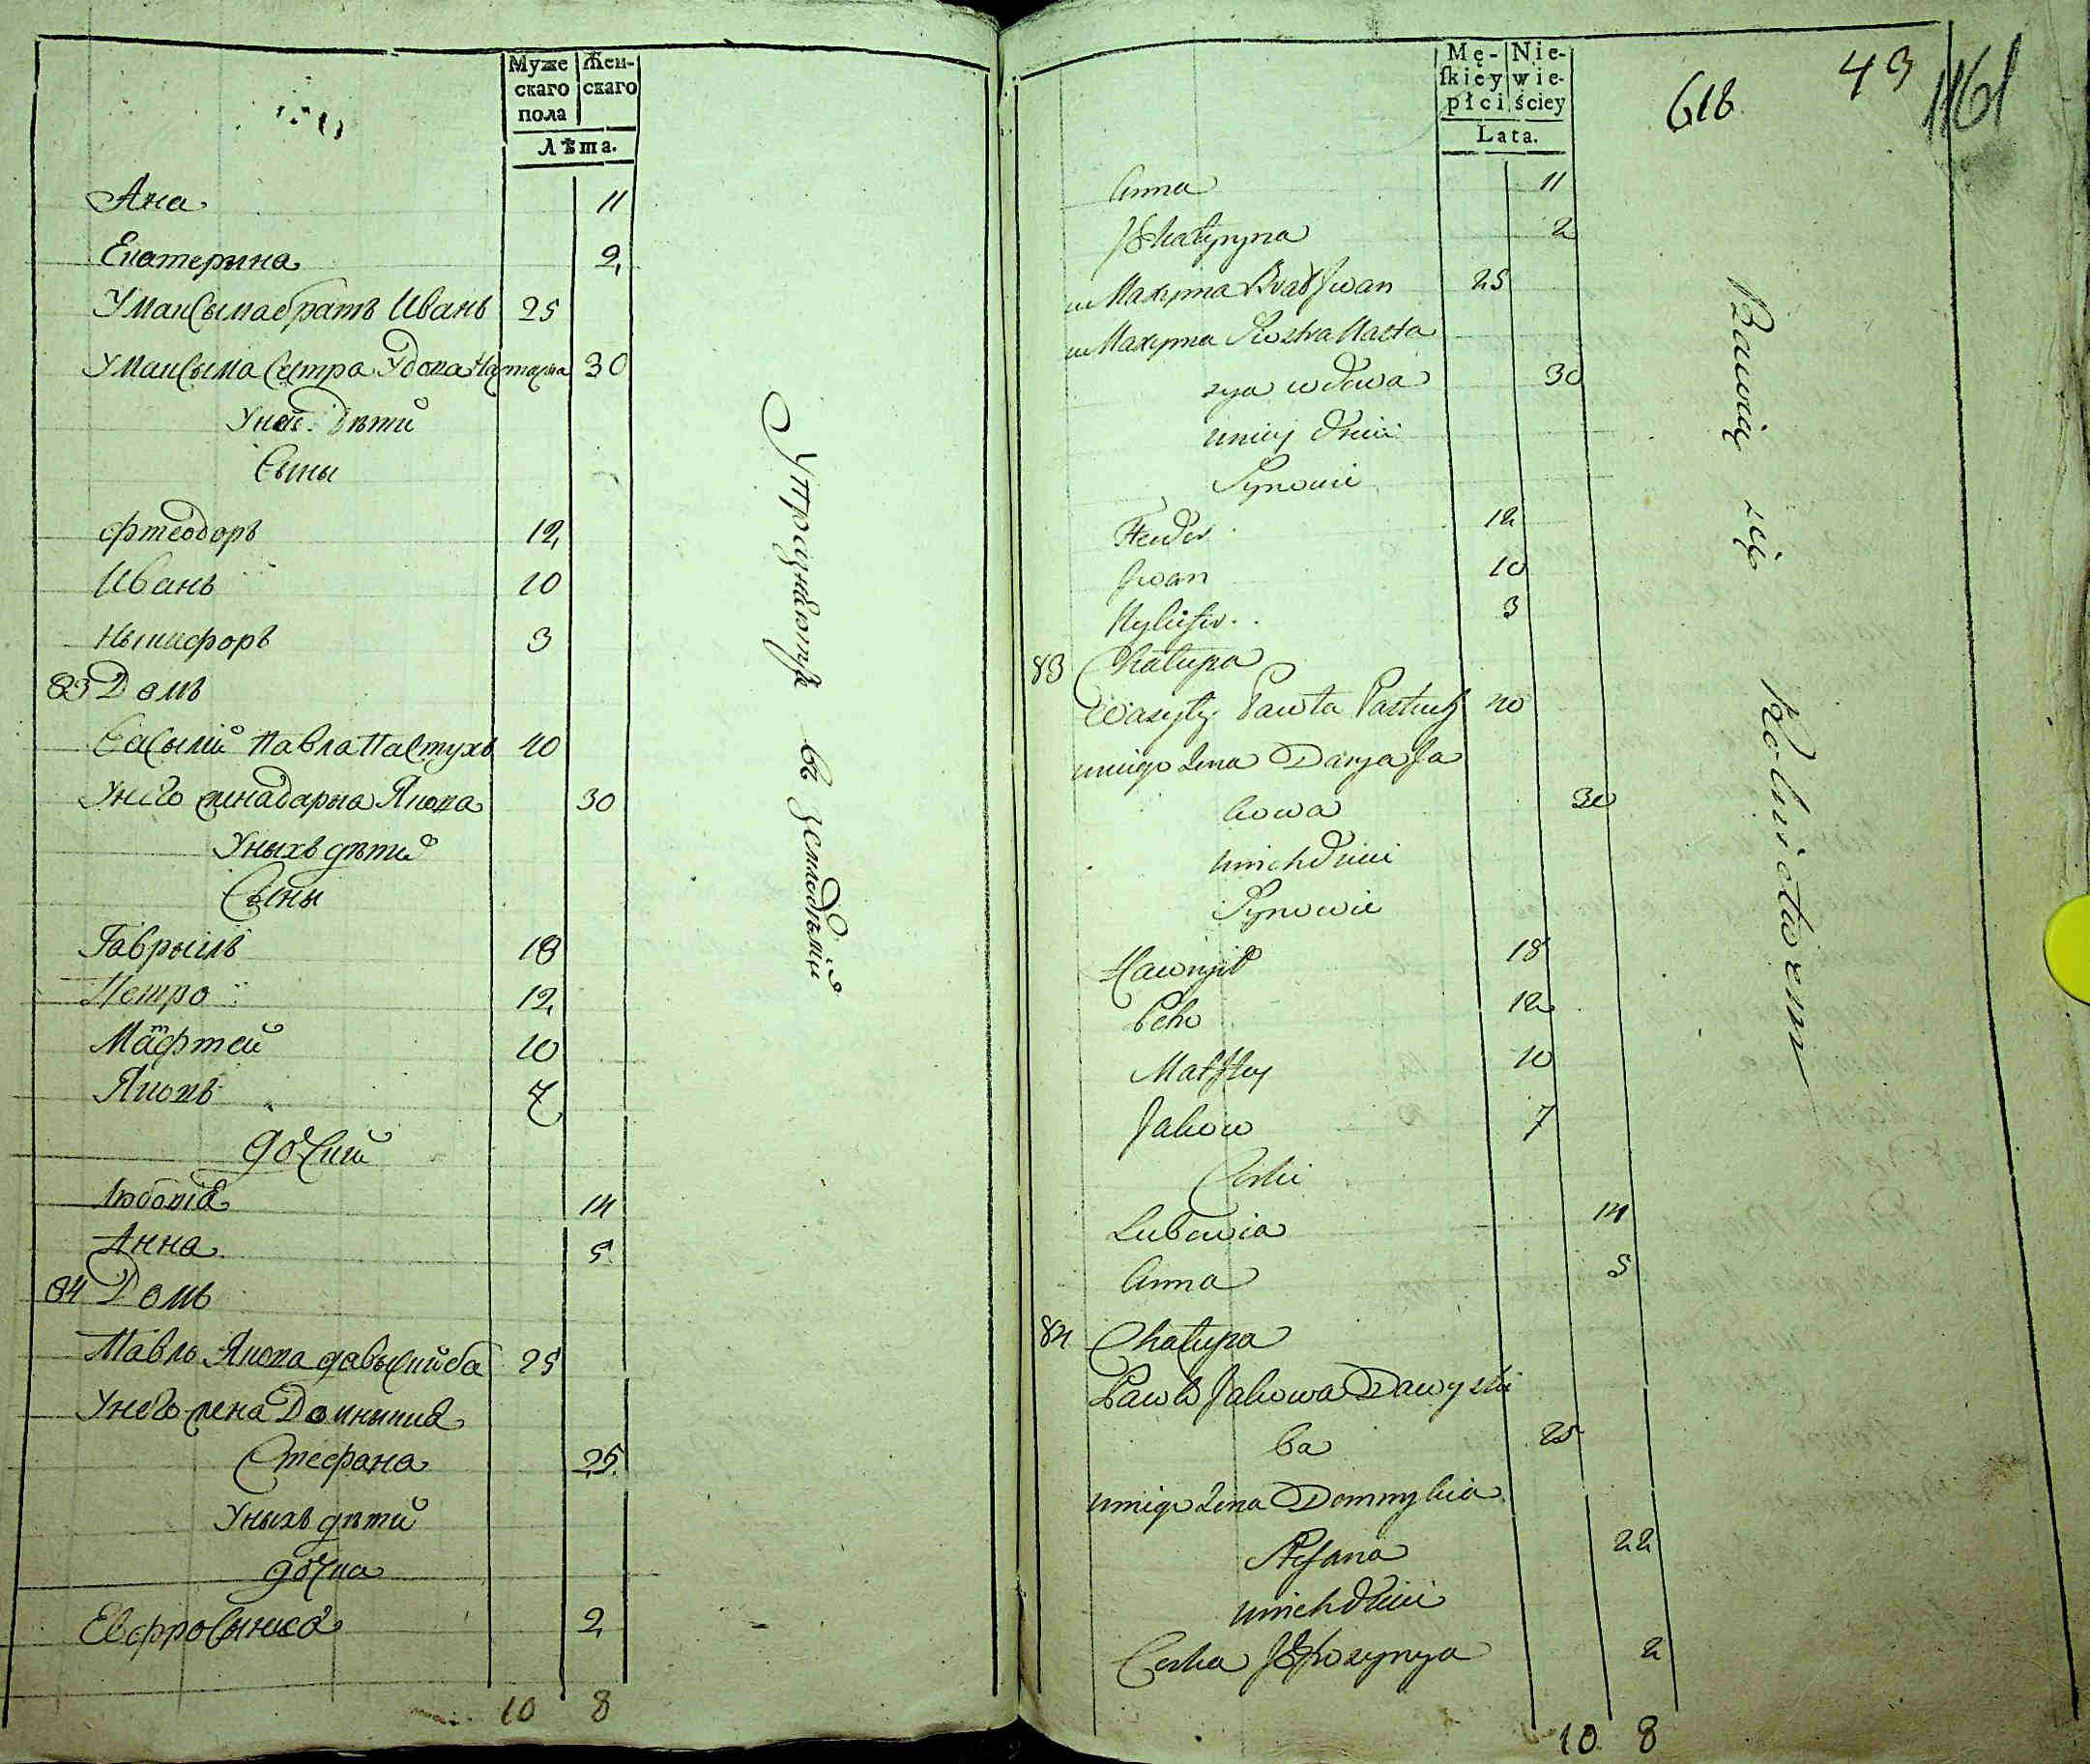 Муже Жен-
скаго скаго
пола
Лѣта.
Ана 11
Екатерина 2
У Максыма братъ Иванъ 25
У Максыма сестра удова Настасыа 30
У ней дѣти
Сыны
Фтеодоръ 12
Иванъ 10
Ныкифоръ 3
83 Домъ
Васылий Павла Пастухъ 40
У него жена Дарыа Якова 30
У ныхъ дѣти
Сыны
Гаврыилъ 18
Петро 12
Матфтей 10
Яковъ 7
дочкий
Любовиа 14
Анна 5
84 Домъ
Павлъ Якова Давыскиба 25
У него жена Домныкиа
Стефана 25
У ныхъ дѣти
дочка
Евфросыниа 2
10 8
Упражнѣются въ земледѣлии
Mę- Nie-
skiey wie-
płci ściey
Lata.
618
43
1161
Anna 11
Jekatyryna 2
u Maxyma Brat Jwan 25
u Maxyma Siostra Nasta
zya wdowa 30
u niey dzieci
Synowie
Feudor 12
Jwan 10
Nykifor 3
83 Chałupa
Wasyly Pawła Pastuch 40
u niego żena Darya Ja
kowa 30
u nich dzieci
Synowie
Hawryił 18
Petro 12
Matftey 10
Jakow 7
Corki
Lubowia 14
Anna 5
84 Chałupa
Pawło Jakowa Dawyski
ba 25
u niego żena Domnykia
Stefana 22
u nich dzieci
Corka Jefrozynya 2
10 8
Bawią się Rolnictwem